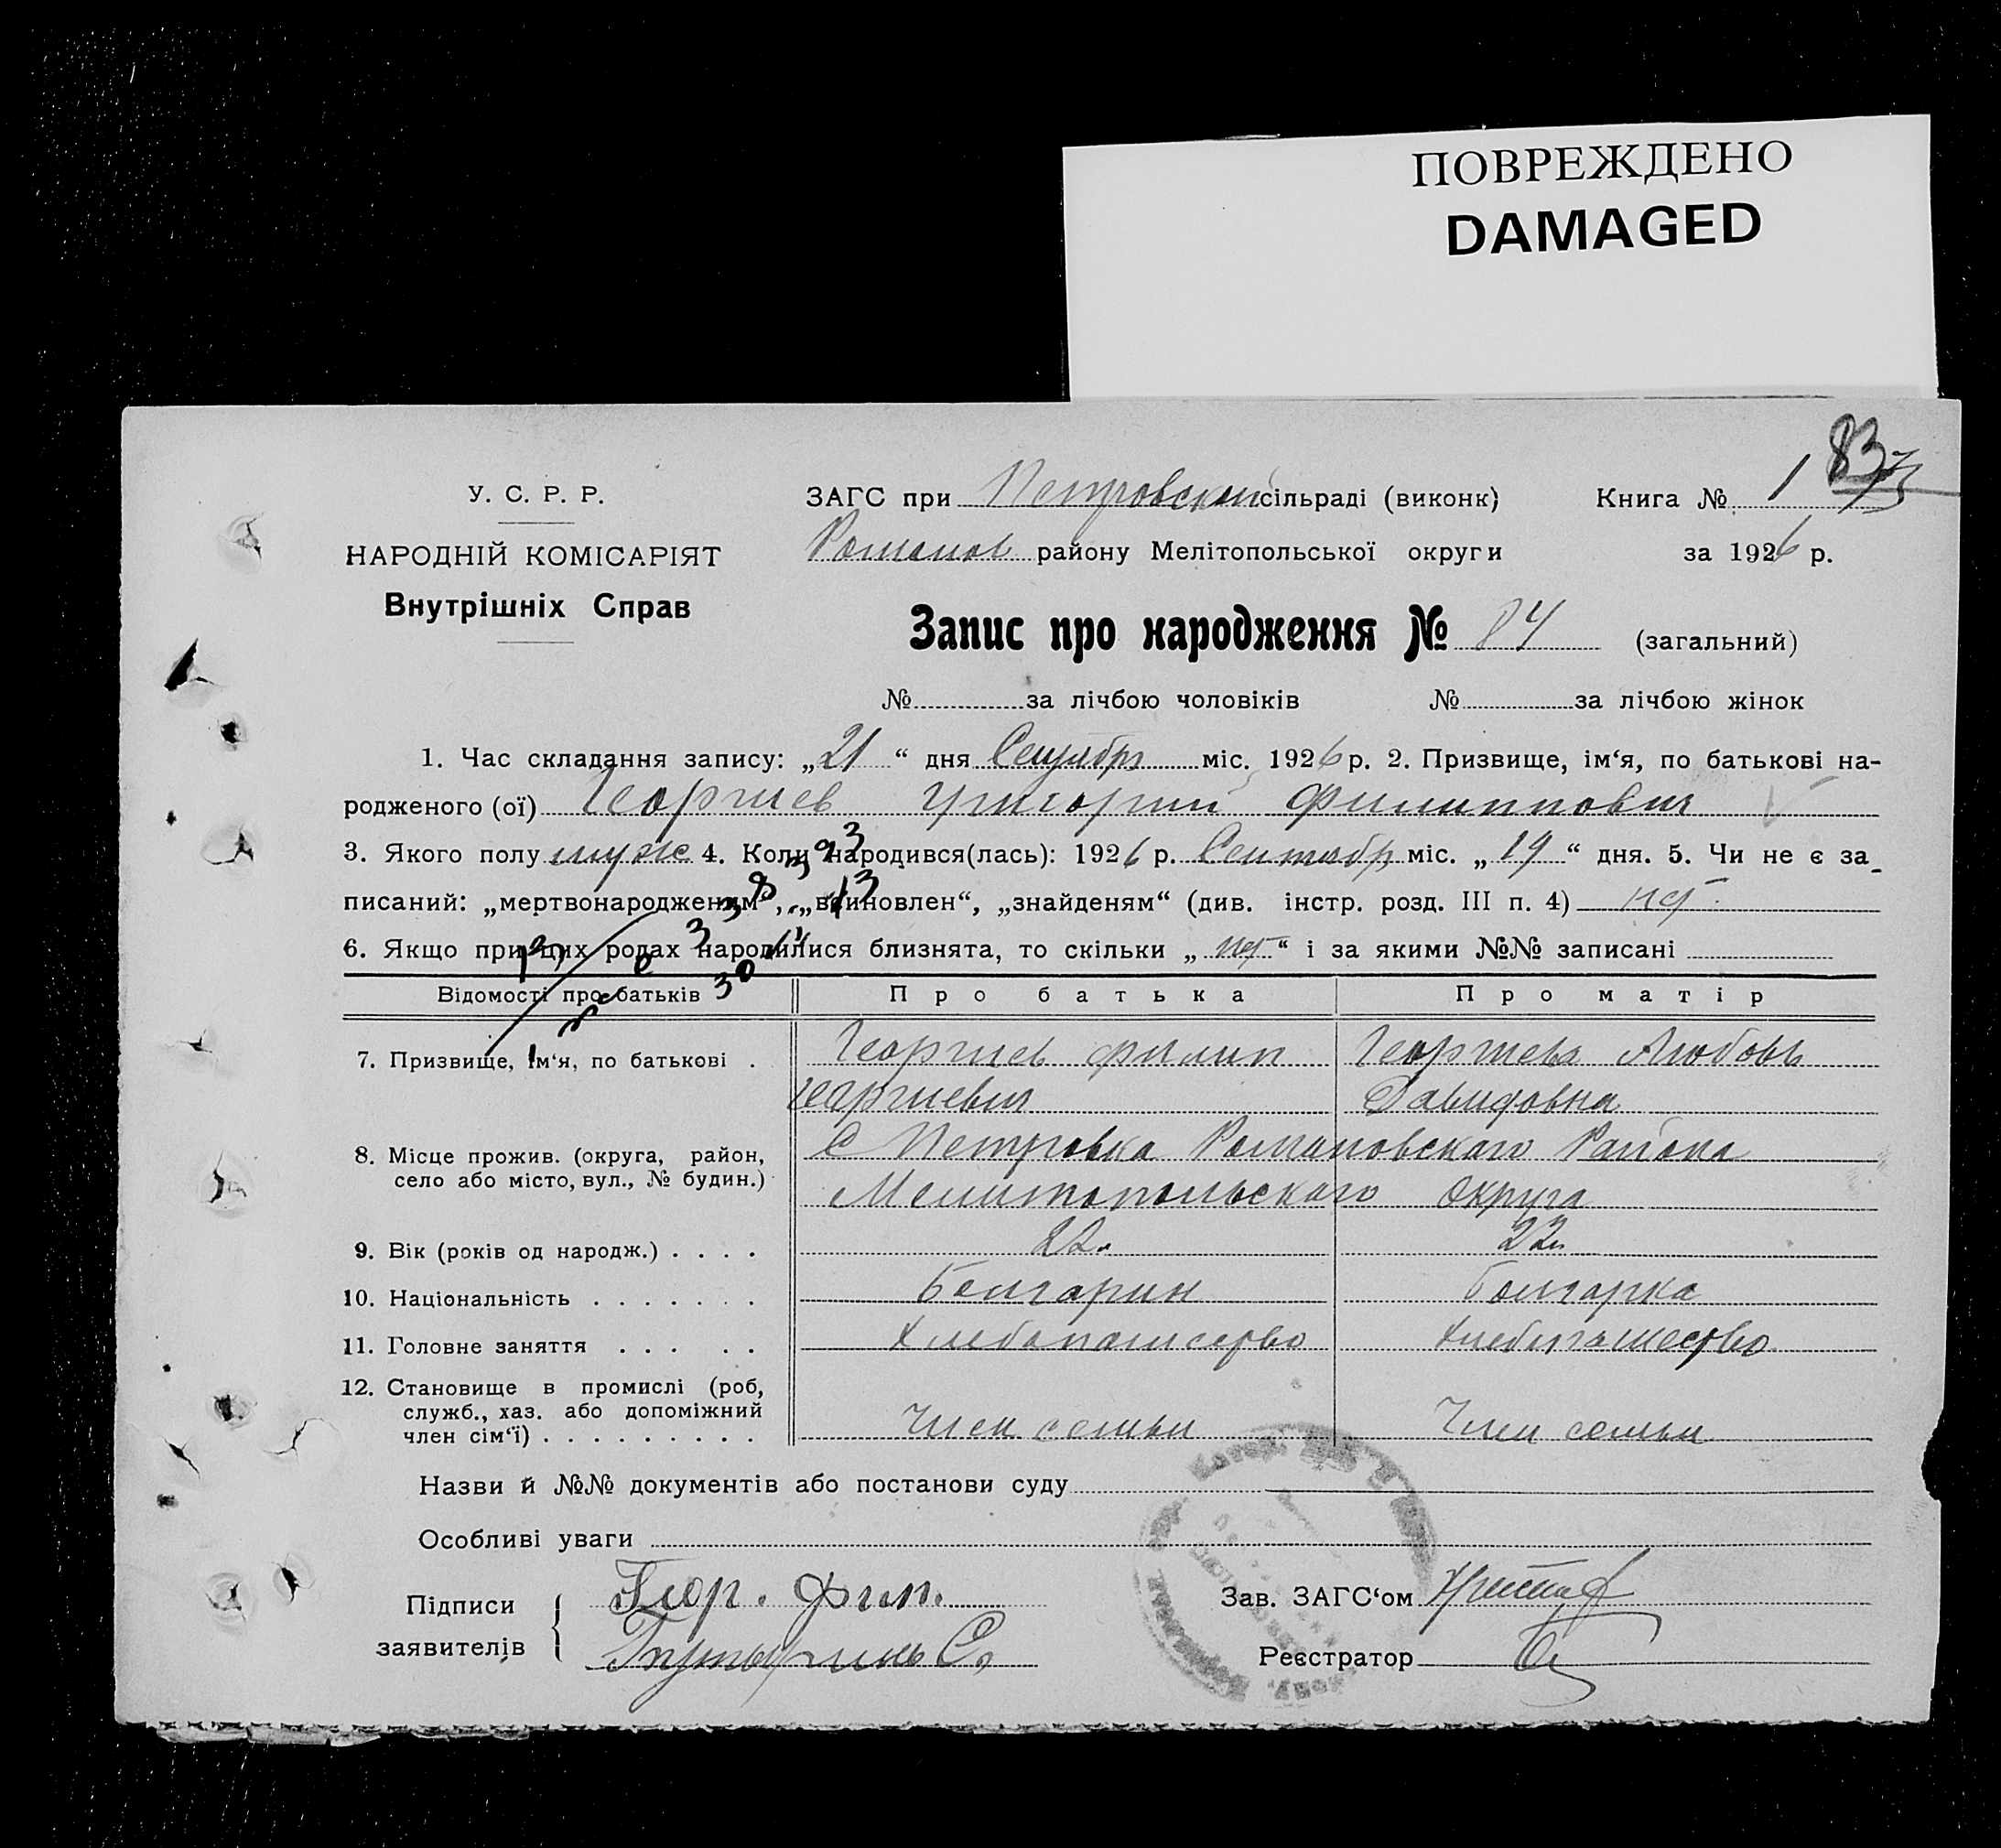 ПОВРЕЖДЕНО
DAMAGED
83
У. С. Р. Р.
НАРОДНІЙ КОМІСАРІЯТ
Внутрішніх Справ
ЗАГС при Петровской сільраді (виконк) Книга № 1
Романов району Мелітопольської округи за 1926 р.
Запис про народження № 84 (загальний)
№ за лічбою чоловіків № за лічбою жінок
1. Час складання запису: „21“ дня Сентября міс. 1926 р. 2. Призвище, ім‘я, по батькові на-
родженого (ої) Георгиев Григорий Филиппович
3. Якого полу муж 4. Коли народився(лась): 1926 р. Сентябр міс. „19“ дня. 5. Чи не є за-
писаний: „мертвонародженим“, „всиновлен“, „знайденям“ (див. інстр. розд. III п. 4) нет
6. Якщо при цих родах народилися близнята, то скільки „нет“ і за якими №№ записані
Відомості про батьків Про батька Про матір
7. Призвище, ім‘я, по батькові . Георгиев Филип Георгиева Любовь
Георгиевич Давидовна
8. Місце прожив. (округа, район, село або місто, вул., № будин.) С Петровка Романовскаго Района
Мелитопольскаго Округа
9. Вік (років од народж.) . . . . 22. 22.
10. Національність . . . . . . . Болгарин Болгарка
11. Головне заняття . . . . . Хлебопашество Хлебопашество
12. Становище в промислі (роб,
служб., хаз. або допоміжний
член сім‘ї) . . . . . . . . . Член семьи Член семьи
Назви й №№ документів або постанови суду
Особливі уваги
Підписи
заявителів
Геор. Фил.
Зав. ЗАГС‘ом
Реєстратор